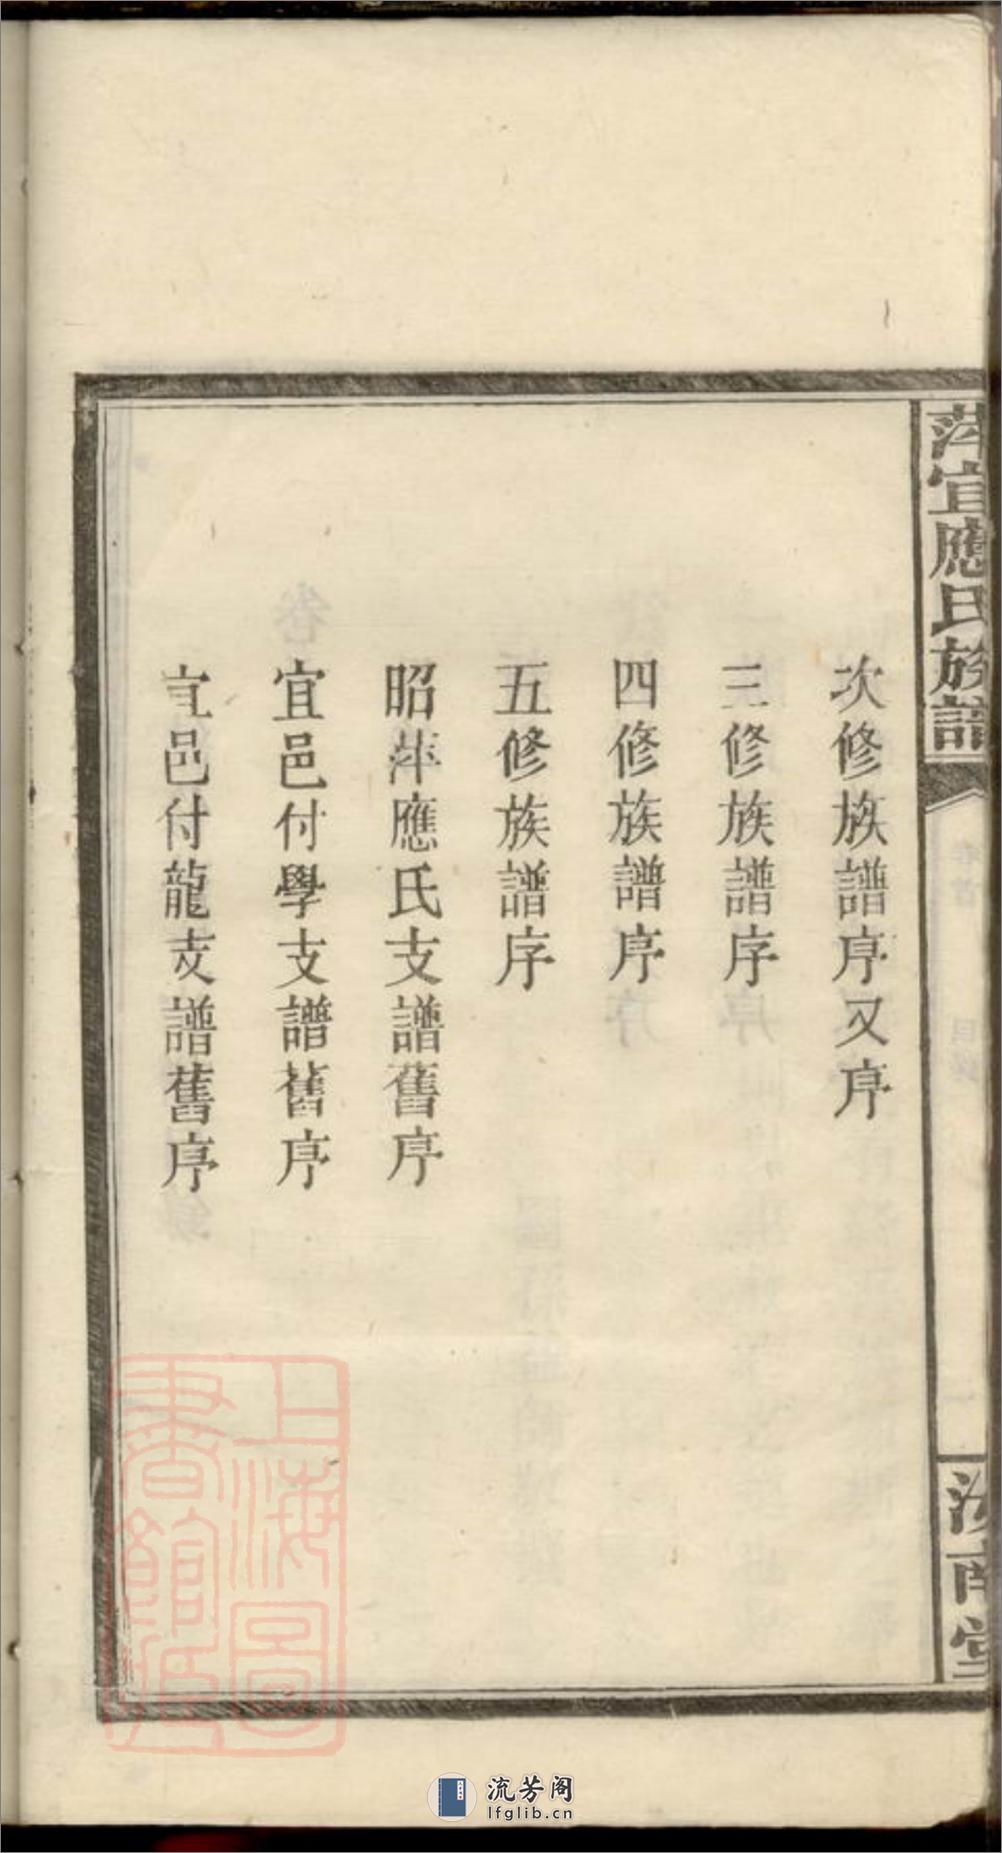 萍宜應氏族譜
卷首
目錄
一
汝南堂
次修族譜序又序
三修族譜序
四修族譜序
五修族譜序
昭萍應氏支譜舊序
宜邑付學支譜舊序
宜邑付龍支譜舊序
上海圖
書館藏
流芳阁
lfglib.cn